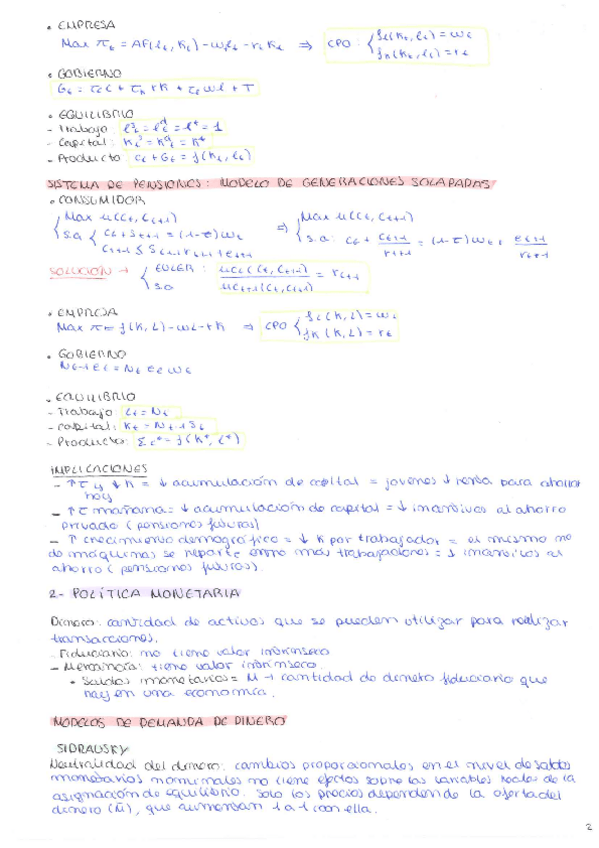 • EMPRESA
Max πt = AF(lt, Kt) - wtlt - rt Kt ⇒ CPO: { fl(Kt, lt) = wt
fk(Kt, lt) = rt
• GOBIERNO
Gt = τc c + τk r k + τl w l + T
• EQUILIBRIO
- Trabajo: l^s_t = l^d_t = l* = 1
- Capital: K^s_t = K^d_t = K*
- Producto: ct + Gt = f(Kt, lt)
SISTEMA DE PENSIONES: MODELO DE GENERACIONES SOLAPADAS
• CONSUMIDOR
{ Max u(ct, ct+1) ⇒ { Max u(ct, ct+1)
s.a { ct + st+1 = (1-τ)wt s.a: ct + ct+1/rt+1 = (1-τ)wt + et+1/rt+1
ct+1 ≤ st+1 rt+1 + et+1
SOLUCIÓN → { EULER: uct(ct, ct+1)/uct+1(ct, ct+1) = rt+1
s.a
• EMPRESA
Max π = f(K, L) - wL - rK ⇒ CPO { fL(K, L) = wt
fK(K, L) = rt
• GOBIERNO
Nt-1 et = Nt τt wt
• EQUILIBRIO
- Trabajo: Lt = Nt
- Capital: Kt = Nt-1 St
- Producto: Σc* = f(K*, L*)
IMPLICACIONES
- ↑τ y ↓K = ↓ acumulación de capital = jovenes ↓ renta para ahorrar
hoy
- ↑τ mañana = ↓ acumulación de capital = ↓ incentivos al ahorro
privado (pensiones futuras)
- ↑ crecimiento demográfico = ↓ K por trabajador = el mismo nº
de máquinas se reparte entre más trabajadores = ↓ incentivos al
ahorro (pensiones futuras).
2- POLÍTICA MONETARIA
Dinero: cantidad de activos que se pueden utilizar para realizar
transacciones.
- Fiduciario: no tiene valor intrínseco
- Mercancía: tiene valor intrínseco.
• Saldos monetarios = M → cantidad de dinero fiduciario que
hay en una economía.
MODELOS DE DEMANDA DE DINERO
SIDRAUSKY
Neutralidad del dinero: cambios proporcionales en el nivel de saldos
monetarios nominales no tiene efectos sobre las variables reales de la
asignación de equilibrio. Solo los precios dependen de la oferta del
dinero (M̄), que aumentan 1 a 1 con ella.
2